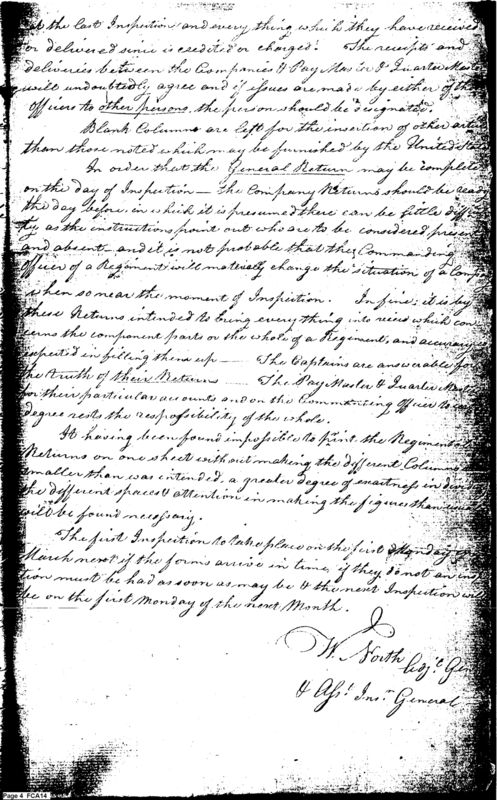 at the last Inspection and every thing which they have received
or delivered since is credited or charged. The receipts and
deliveries between the Companies & Pay Master & Quarter Master
will undoubtedly agree and if issues are made by either of the
officers to other persons, the person should be designated.
Blank Columns are left for the insertion of other
than those noted which may be furnished by the United
In order that the General Return may be
on the day of Inspection — The Company Returns should be ready
the day before, in which it is presumed there can be little
as the instructions point out who are to be considered present
and absent and it is not probable that the Commanding
officer of a Regiment will materially change the situation of a
when so near the moment of Inspection. In fine, it is by
these Returns intended to bring every thing into view which
the component parts or the whole of a Regiment, and accuracy
expected in filling them up — The Captains are answerable for
the truth of their Returns — The Pay Master & Quarter Master
for their particular accounts and on the Commanding officer
degree rests the responsibility of the whole.
It having been found impossible to print the
Returns on one sheet without making the different Columns
smaller than was intended, a greater degree of exactness in
the different spaces & attention in making the figures than
will be found necessary.
The first Inspection to take place on the first Monday
March next if the forms arrive in time, if they do not an
must be had as soon as may be & the next Inspection
be on the first Monday of the next Month.
W. North Adj. Gen
& Asst. Insr. General
Page 4 FCA14